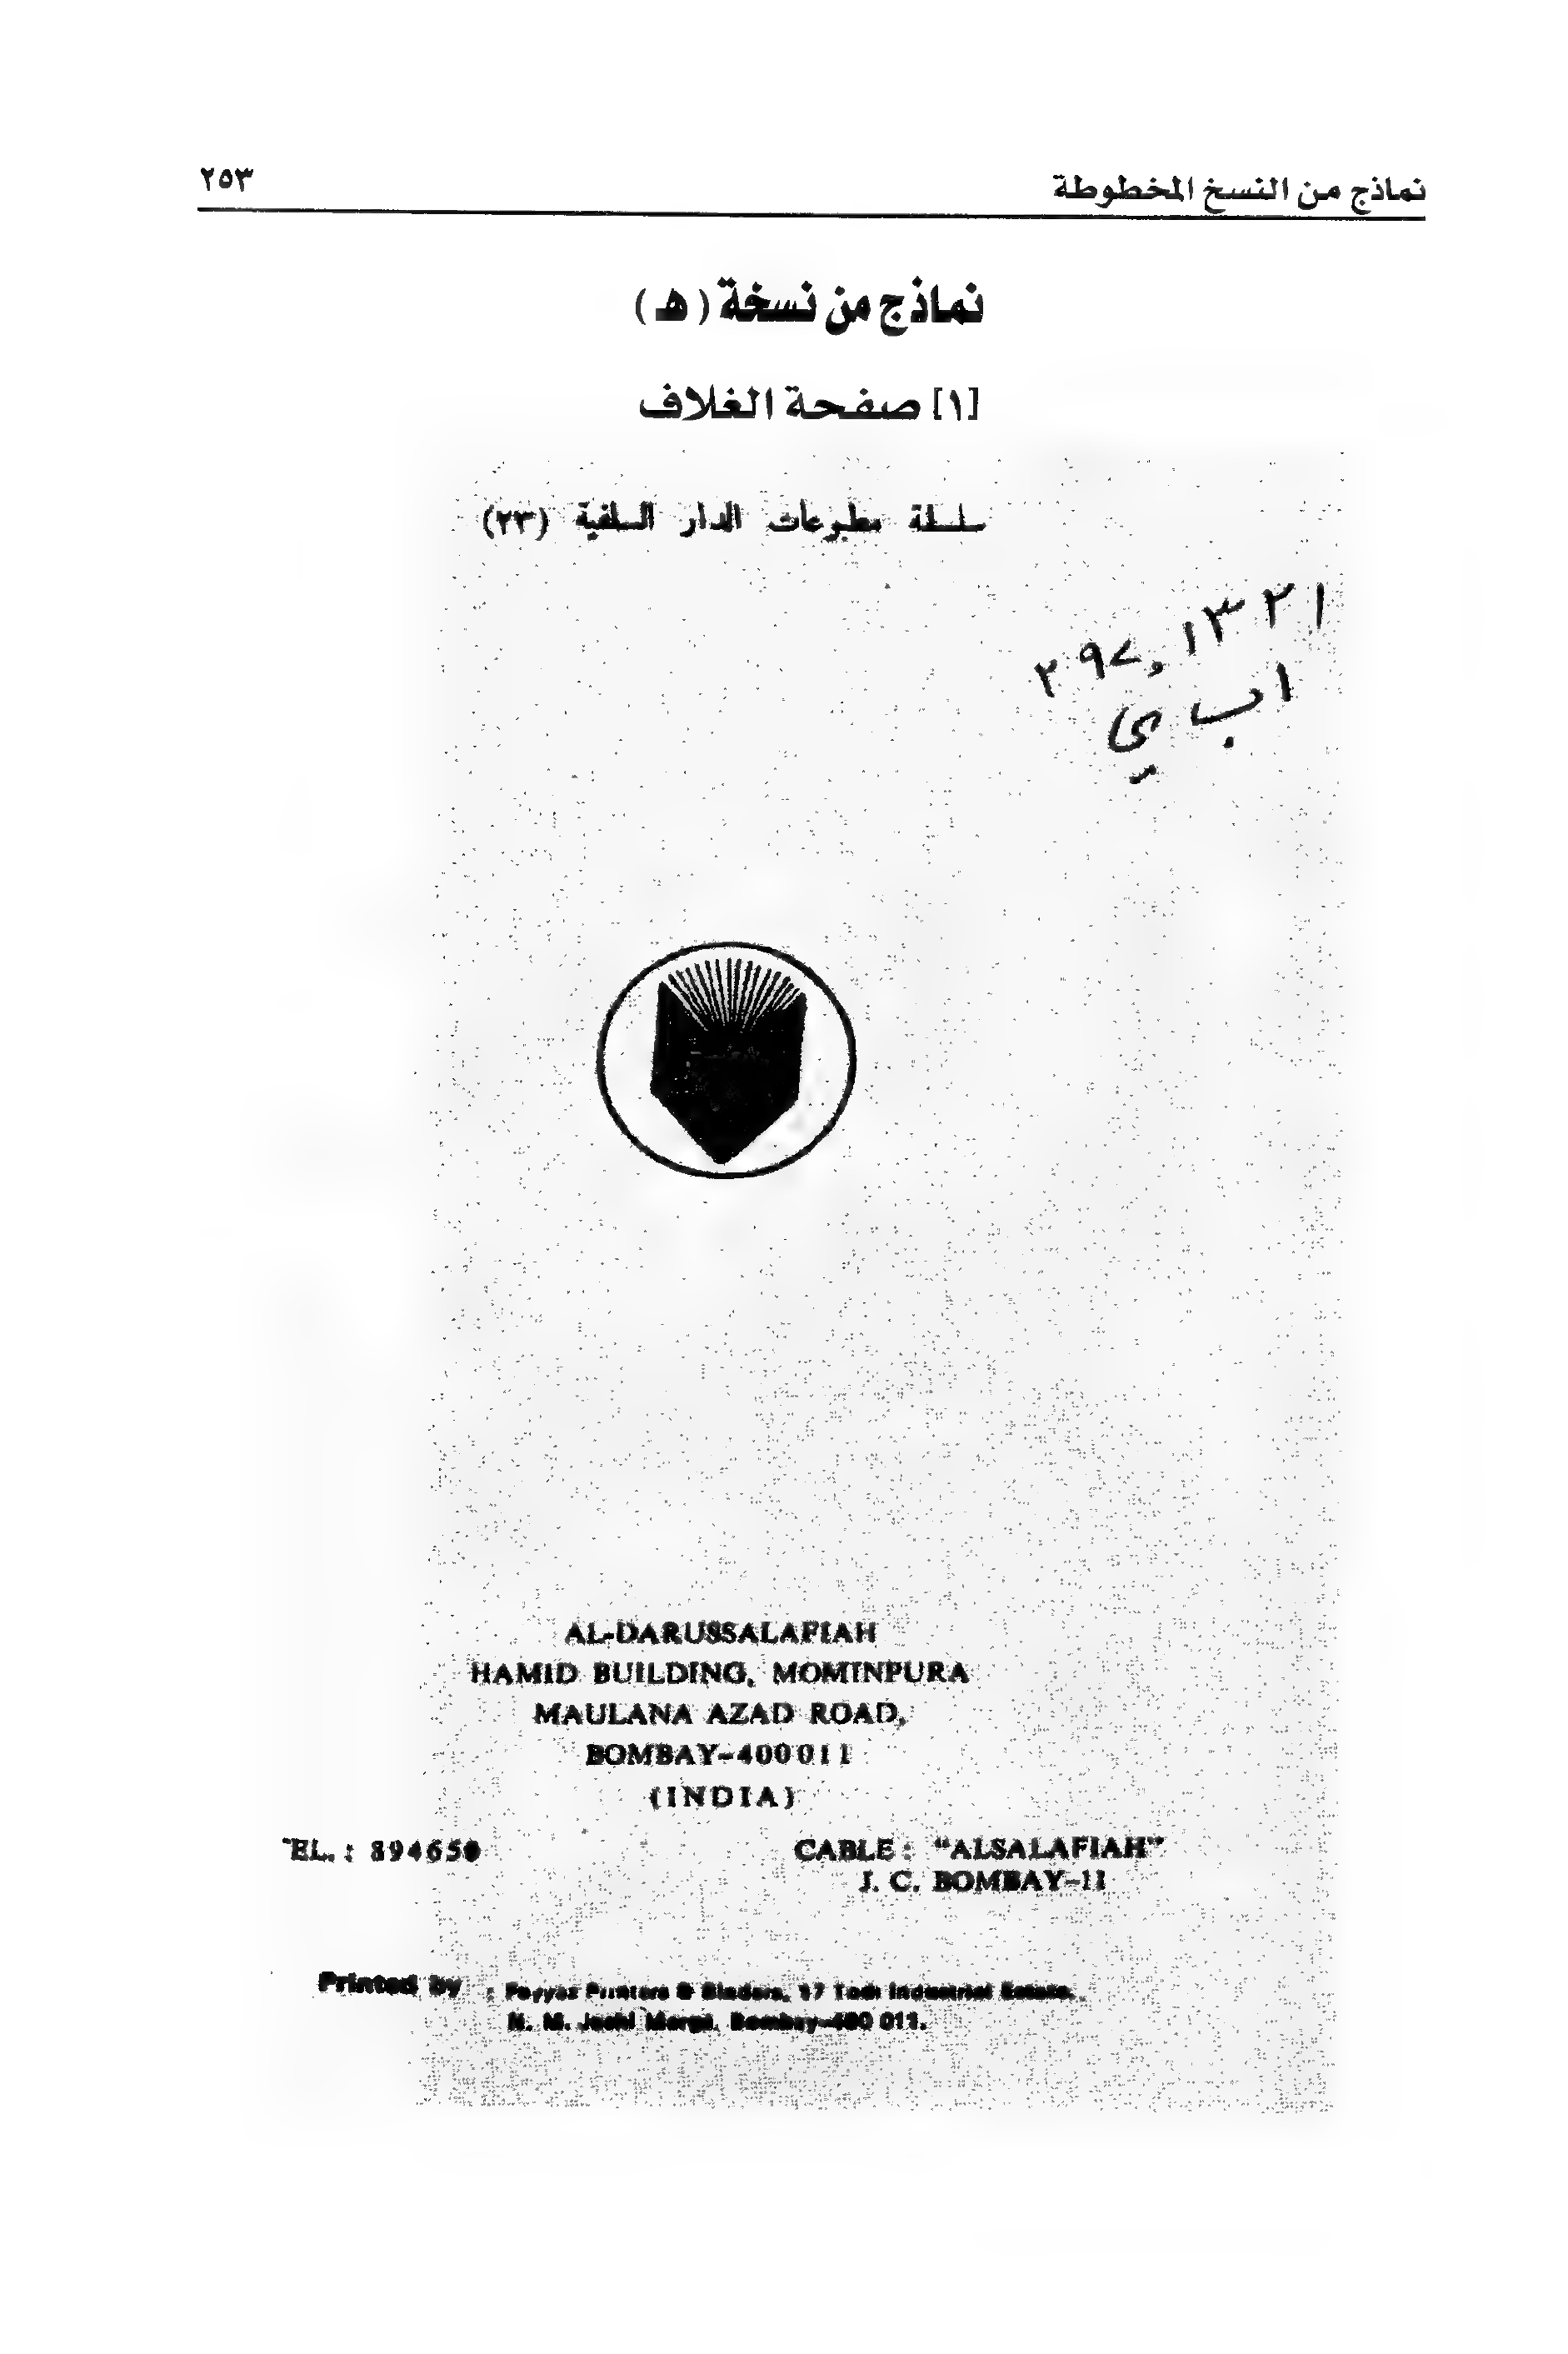 نماذج من النسخ المخطوطة ٢٥٣
نماذج من نسخة (هـ)
[١] صفحة الغلاف
سلسلة مطبوعات الدار السلفية (٢٣)
٢٩٧,١٣٢١
ا ب ي
AL-DARUSSALAFIAH
HAMID BUILDING, MOMINPURA
MAULANA AZAD ROAD,
BOMBAY-400011
(INDIA)
EL. : 894650
CABLE : "ALSALAFIAH"
J. C. BOMBAY-11
Printed by : Fayyaz Printers & Binders, 17 Todi Industrial Estate,
N. M. Joshi Marga, Bombay-400 011.